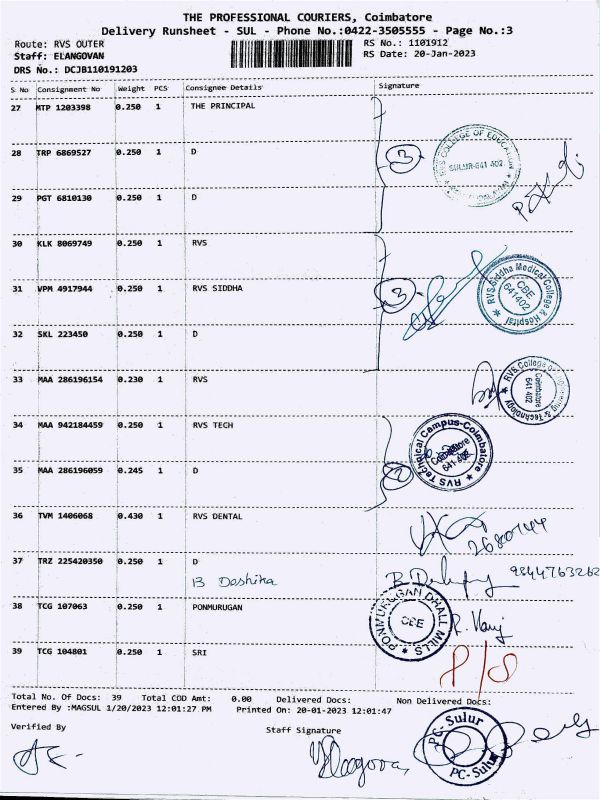 THE PROFESSIONAL COURIERS, Coimbatore
Delivery Runsheet - SUL - Phone No.:0422-3505555 - Page No.:3
Route: RVS OUTER RS No.: 1101912
Staff: ELANGOVAN RS Date: 20-Jan-2023
DRS No.: DCJB110191203
S No Consignment No Weight PCS Consignee Details Signature
27 MTP 1203398 0.250 1 THE PRINCIPAL
28 TRP 6869527 0.250 1 D
3 RVS COLLEGE OF EDUCATION SULUR-641 402
29 PGT 6810130 0.250 1 D
30 KLK 8069749 0.250 1 RVS
31 VPM 4917944 0.250 1 RVS SIDDHA
3 RVS Siddha Medical College & Hospital CBE 641402
32 SKL 223450 0.250 1 D
33 MAA 286196154 0.230 1 RVS
RVS College of Engineering & Technology Coimbatore 641 402
34 MAA 942184459 0.250 1 RVS TECH
RVS Technical Campus-Coimbatore Coimbatore 641 402
35 MAA 286196059 0.245 1 D
2
36 TVM 1406068 0.430 1 RVS DENTAL
37 TRZ 225420350 0.250 1 D
B Deshika
38 TCG 107063 0.250 1 PONMURUGAN
PONMURUGAN DHALL MILLS CBE
39 TCG 104801 0.250 1 SRI
Total No. Of Docs: 39 Total COD Amt: 0.00 Delivered Docs: Non Delivered Docs:
Entered By :MAGSUL 1/20/2023 12:01:27 PM Printed On: 20-01-2023 12:01:47
Verified By Staff Signature
PC-Sulur PC-Sulur